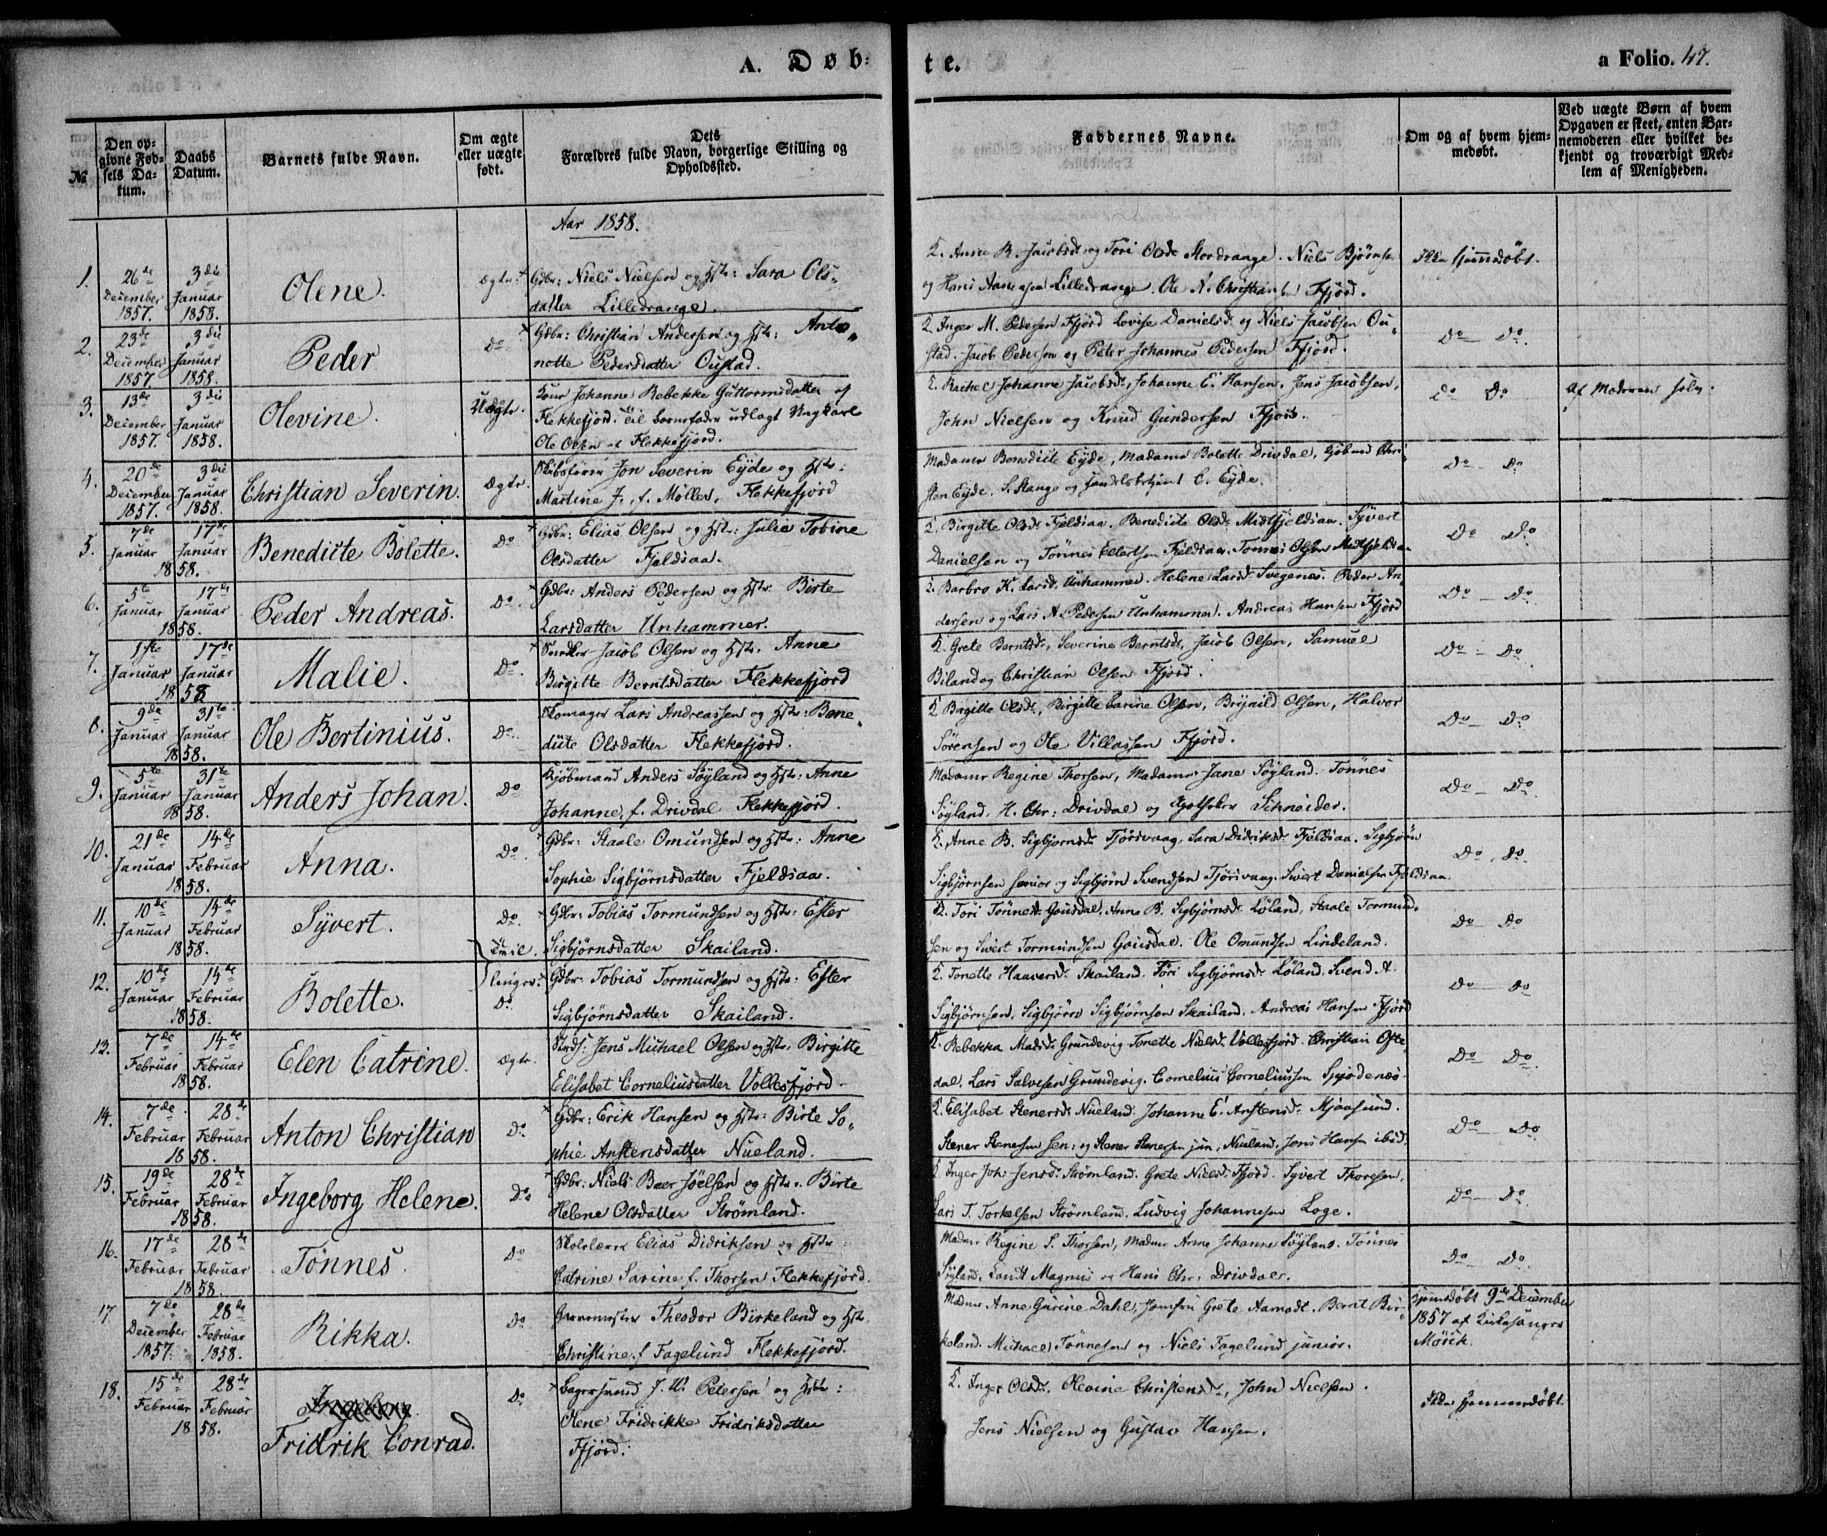 A. Døb-
te.
a Folio. 47.
No
Den opgivne Fødsels Datum.
Daabs Datum.
Barnets fulde Navn.
Om ægte eller uægte født.
Dets Forældres fulde Navn, borgerlige Stilling og Opholdssted.
Faddernes Navne.
Om og af hvem hjemmedøbt.
Ved uægte Børn af hvem Opgaven er skeet, enten Barnemoderen eller hvilket bekjendt og troværdigt Medlem af Menigheden.
Aar 1858.
1. 26de December 1857. 3die Januar 1858. Olene. Ægte. Gdbr: Niels Nielsen og Hstr: Sara Olsdatter Lilledrange.
F. Anne R. Jacobsd. og Töri Olsd. Stordrange. Niels Bjørnsen og Hans Hansen Lilledrange. Ole N. Christians Ffjord. Ikke hjemmdöbt.
2. 23de December 1857. 3die Januar 1858. Peder Do Gdbr: Christian Andersen og Hstr: Antonette Pedersdatter Oustad.
F. Inger M. Pedersen Ffjord Lovise Danielsd. og Niels Jacobsen Oustad. Jacob Pedersen og Peter Johannes Pedersen Ffjord. Do Do
3. 13de December 1857. 3die Januar 1858. Olevine. Uægte. Johanne Rebekka Guttormsdatter af Flekkefjord. Til barnefader udlagt Ungkarl Ole Olsen af Flekkefjord.
F. Rachel Johanne Jacobsd., Johanne E. Hansen. Jens Jacobsen, John Nielsen og Knud Gundersen Ffjord. Do Do Af Moderen selv.
4. 20de December 1857. 3die Januar 1858. Christian Severin. Ægte. Jon Severin Eyde og Hstr: Martine J., f. Møller, Flekkefjord
Madame Benedicte Eyde, Madame Bolette Drivdal, Christen Eyde. S. Stange og Handelsbetjent C. Eyde. Do Do
5. 7de Januar 17de Januar 1858. Benedicte Bolette. Do Gdbr: Elias Olsen og Hstr: Julie Tobine Olsdatter Fjeldsaa.
F. Birgitte Olsd. Fjeldsaa. Benedicte Olsd. Midtfjeldsaa. Syvert Danielsen og Tönnes Ellertsen Fjeldsaa. Tönnes Olsen Midtfjeldsaa Do Do
6. 5te Januar 17de Januar 1858. Peder Andreas. Do. Gdbr: Anders Pedersen og Hstr: Birte Larsdatter Unhammer.
F. Barbro K. Larsd. Unhammer. Helene Larsd. Svegenes. Peder Andersen og Lars A. Pedersen Unhammer. Andreas Hansen Ffjord Do Do
7. 1ste Januar 17de Januar 1858. Malie. Do. Jacob Olsen og Hstr. Anne Birgitte Berntsdatter Flekkefjord
F. Grete Berntsd., Severine Berntsd., Jacob Olsen, Samuel Biland og Christian Olsen Ffjord. Do Do
8. 9de Januar 31te Januar 1858. Ole Bertinius. Do. Skomager Lars Andreassen og Hstr: Benedicte Olsdatter Flekkefjord.
F. Birgitte Olsd., Birgitte Carine Olsen, Brynild Olsen, Halvor Sörensen og Ole Villassen Ffjord. Do Do
9. 5te Januar 31te Januar 1858. Anders Johan. Do Kjöbmand Anders Söyland og Hstr. Anne Johanne, f. Drivdal Flekkefjord.
Madame Regine Thorsen, Madame Jane Söyland. Tönnes Söyland. H. Chr: Drivdal og Apotheker Schneider. Do Do
10. 21de Januar 14de Februar 1858. Anna. Do. Gdbr: Staale Omundsen og Hstr: Anne Sophie Sigbjörnsdatter Fjeldsaa.
F. Anne B. Sigbjornsd. Tjörsvaag, Sara Didriksd. Fjeldsaa. Sigbjörn Sigbjörnsen senior og Sigbjörn Svendsen Tjörsvaag. Sivert Danielsen Fjeldsaa. Do Do
11. 10de Januar 14de Februar 1858. Syvert. Do. Gdbr: Tobias Tormundsen og Hstr: Ester Sigbjörnsdatter Skailand.
F. Töri Tönnesd. Gousdal, Anne B. Sigbjörnsd. Löland, Staale Tormundsen og Sivert Tormundsen Gousdal. Ole Omundsen Lindeland. Do Do
Tvillinger.
12. 10de Januar 14de Februar 1858. Bolette. Do. Gdbr: Tobias Tormundsen og Hstr: Ester Sigbjörnsdatter Skailand.
F. Tonette Haaversd. Skailand. Töri Sigbjörnsd. Löland. Svend A. Sigbjörnsen, Sigbjörn Sigbjörnsen Skailand. Andreas Hansen Ffjord Do Do
13. 7de Februar 14de Februar 1858. Elen Catrine. Ægte. Jens Michael Olsen og Hstr. Birgitte Elisabet Corneliusdatter Vollesfjord.
F. Rebekka Madsd. Grundevig. Tonette Nielsd. Vollesfjord. Christian Ostedal. Lars Salvesen Grundevig. Cornelius Corneliussen Do Do
14. 7de Februar 28de Februar 1858. Anton Christian Do. Gdbr: Erik Hansen og Hstr: Birte Sophie Anstensdatter Nueland.
F. Elisabet Stenersd. Nueland. Johanne E. Anstensd. Mjaasund. Stener Stenersen sen: og Stener Stenersen jun, Nueland. Jens Hansen ibid. Do Do
15. 19de Februar 28de Februar 1858. Ingeborg Helene. Do Gdbr: Niels Beer Joelsen og Hstr. Birte Helene Olsdatter Strømland.
F. Inger Joh. Jensd. Strømland. Grete Nielsd. Ffjord. Syvert Thorsen, Lars T. Torkelsen Strømland. Ludvig Johannesen Loge. Do Do
16. 17de Februar 28de Februar 1858. Tönnes. Do Skolelærer Elias Didriksen og Hstr: Catrine Sarine f. Thorsen Flekkefjord.
Madme Regine S. Thorsen, Madme Anne Johanne Söyland. Tönnes Söyland. Magnus og Hans Chr: Drivdal. Do Do
17. 7de December 1857. 28de Februar 1858. Rikka. Do Theodor Birkeland og Hstr. Christine f. Fagelund Flekkefjord.
Madme Anne Gurine Dahl, Jomfru Grete Aamodt. Bernt Birkeland. Michael Tönnesen og Niels Fagelund junior. Hjemmedöbt 9de December 1857 af Kirkesanger Mörik.
18. 15de Februar 28de Februar 1858. Fridrik Conrad. Do. J. W. Petersen og Hstr: Olene Fridrikke Fridriksdatter Ffjord.
F. Inger Olsd. Olevine Christensd., John Nielsen. Jens Nielsen og Gustav Hansen. Ikke hjemmedöbt.